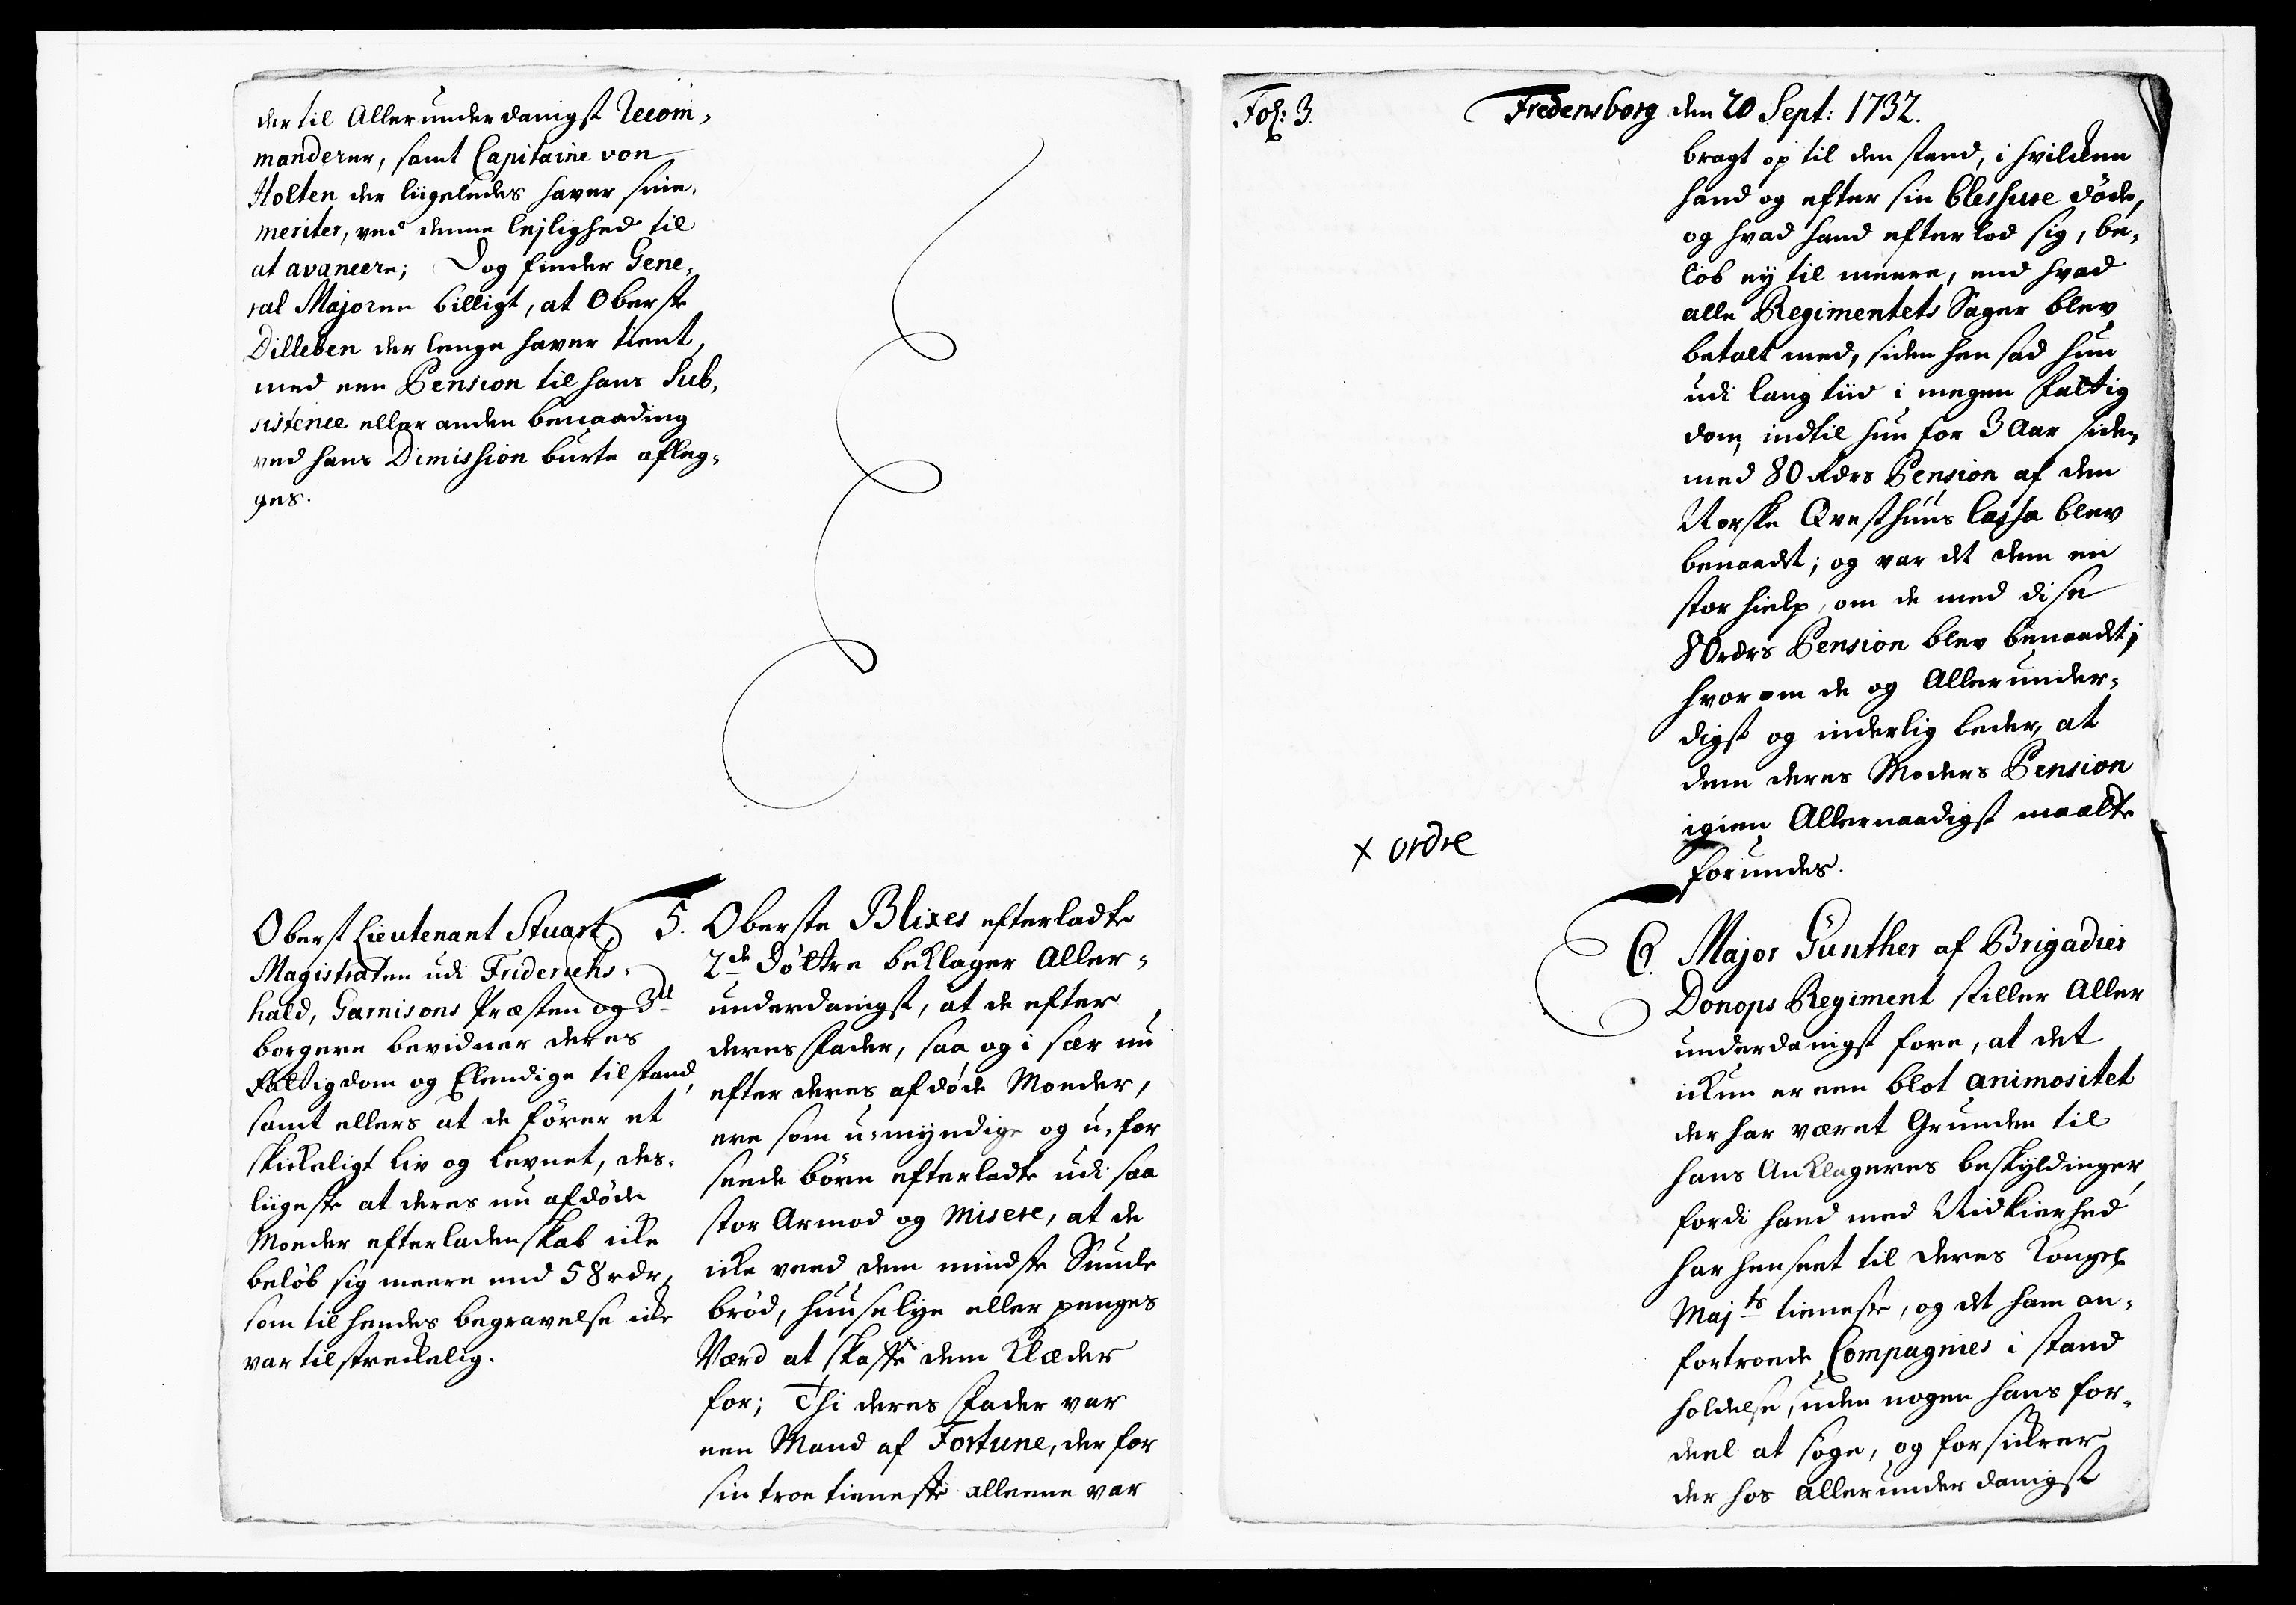 der til Allerunderdanigst Recom,
manderer, samt Capitaine von
Holten der liigeledes haver sine
meriter, ved denne lejlighed til
at avancere; Dog finder Gene,
ral Majoren billigt, at Oberste
Dilleben der lenge haver tient,
med een Pension til hans Sub,
sistence eller anden benaading
ved hans Dimission burte afleg,
ges.
Oberst Lieutenant Stuart
Magistraten udi Friderichs,
hald, Garnisons Præsten og 3de
borgere bevidner deres
Fattigdom og Elendige tilstand,
samt ellers at de förer et
skickeligt Liv og Levnet, des,
liigeste at deres nu afdöde
Moeder efterladenskab icke
belöb sig meere end 58 rdr,
som til hendes begravelse icke
var tilstreckelig.
5. Oberste Blixes efterladte
2de Döttre beklager Aller,
underdanigst, at de efter
deres Fader, saa og i sær nu
efter deres afdöde Moeder,
ere som u,myndige og u,for
seede börn efterladte udi saa
stor Armod og Misere, at de
icke veed dem mindste Smule
bröd, huuselye eller penges
Værd at skaffe dem Klæder
for; Thi deres Fader var
een Mand af Fortune, der for
sin troe tieneste alleene var
Fol: 3. Fredensborg den 20 Sept: 1732.
bragt op til den stand, i hvilcken
hand og efter sin blessure döde,
og hvad hand efterlod sig, be,
löb ey til meere, end hvad
alle Regimentets Sager blev
betalt med, siden hen sad hun
udi lang tiid i megen Fattig
dom, indtil hun for 3 Aar siden
med 80 Rdrs Pension af den
Norske Qvesthuus Cassa blev
benaadt; og var det dem en
stor hielp, om de med dise
80 rdrs Pension blev benaadt;
hvorom de og Allerunder,
digst og inderlig beder, at
dem deres Moders Pension
igien Allernaadigst maatte
forundes.
x ordre
6. Major Günther af Brigadier
Donops Regiment stiller Aller
underdanigst fore, at det
ickun er een blot animositet
der har været Grunden til
hans Anklageres beskyldinger,
fordi hand med Nidkierhed
har henseet til Deres Kongel
Majts tieneste, og det ham an,
fortroede Compagnies i stand
holdelse, uden nogen hans for,
deel at söge, og forsickrer
der hos allerunderdanigst